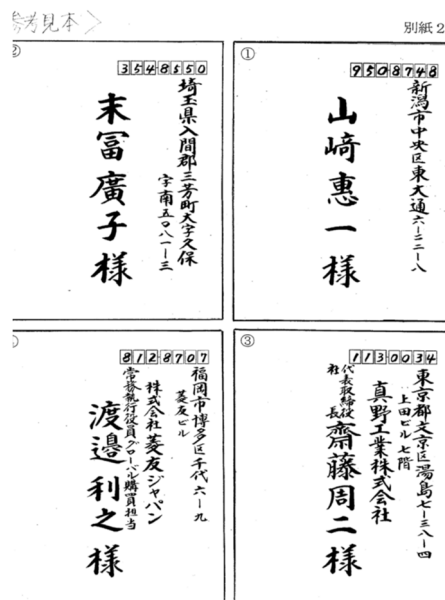 参考見本＞
別紙2
①
950-8748
新潟市中央区東大通六-二二-八
山﨑惠一様
②
354-8550
埼玉県入間郡三芳町大字久保
字南五〇八一-三
末冨廣子様
③
113-0034
東京都文京区湯島七-三八-四
上田ビル七階
真野工業株式会社
代表取締役
社長
齋藤周二様
812-8707
福岡市博多区千代六-九
菱友ビル
株式会社菱友ジャパン
常務執行役員グローバル購買担当
渡邉利之様